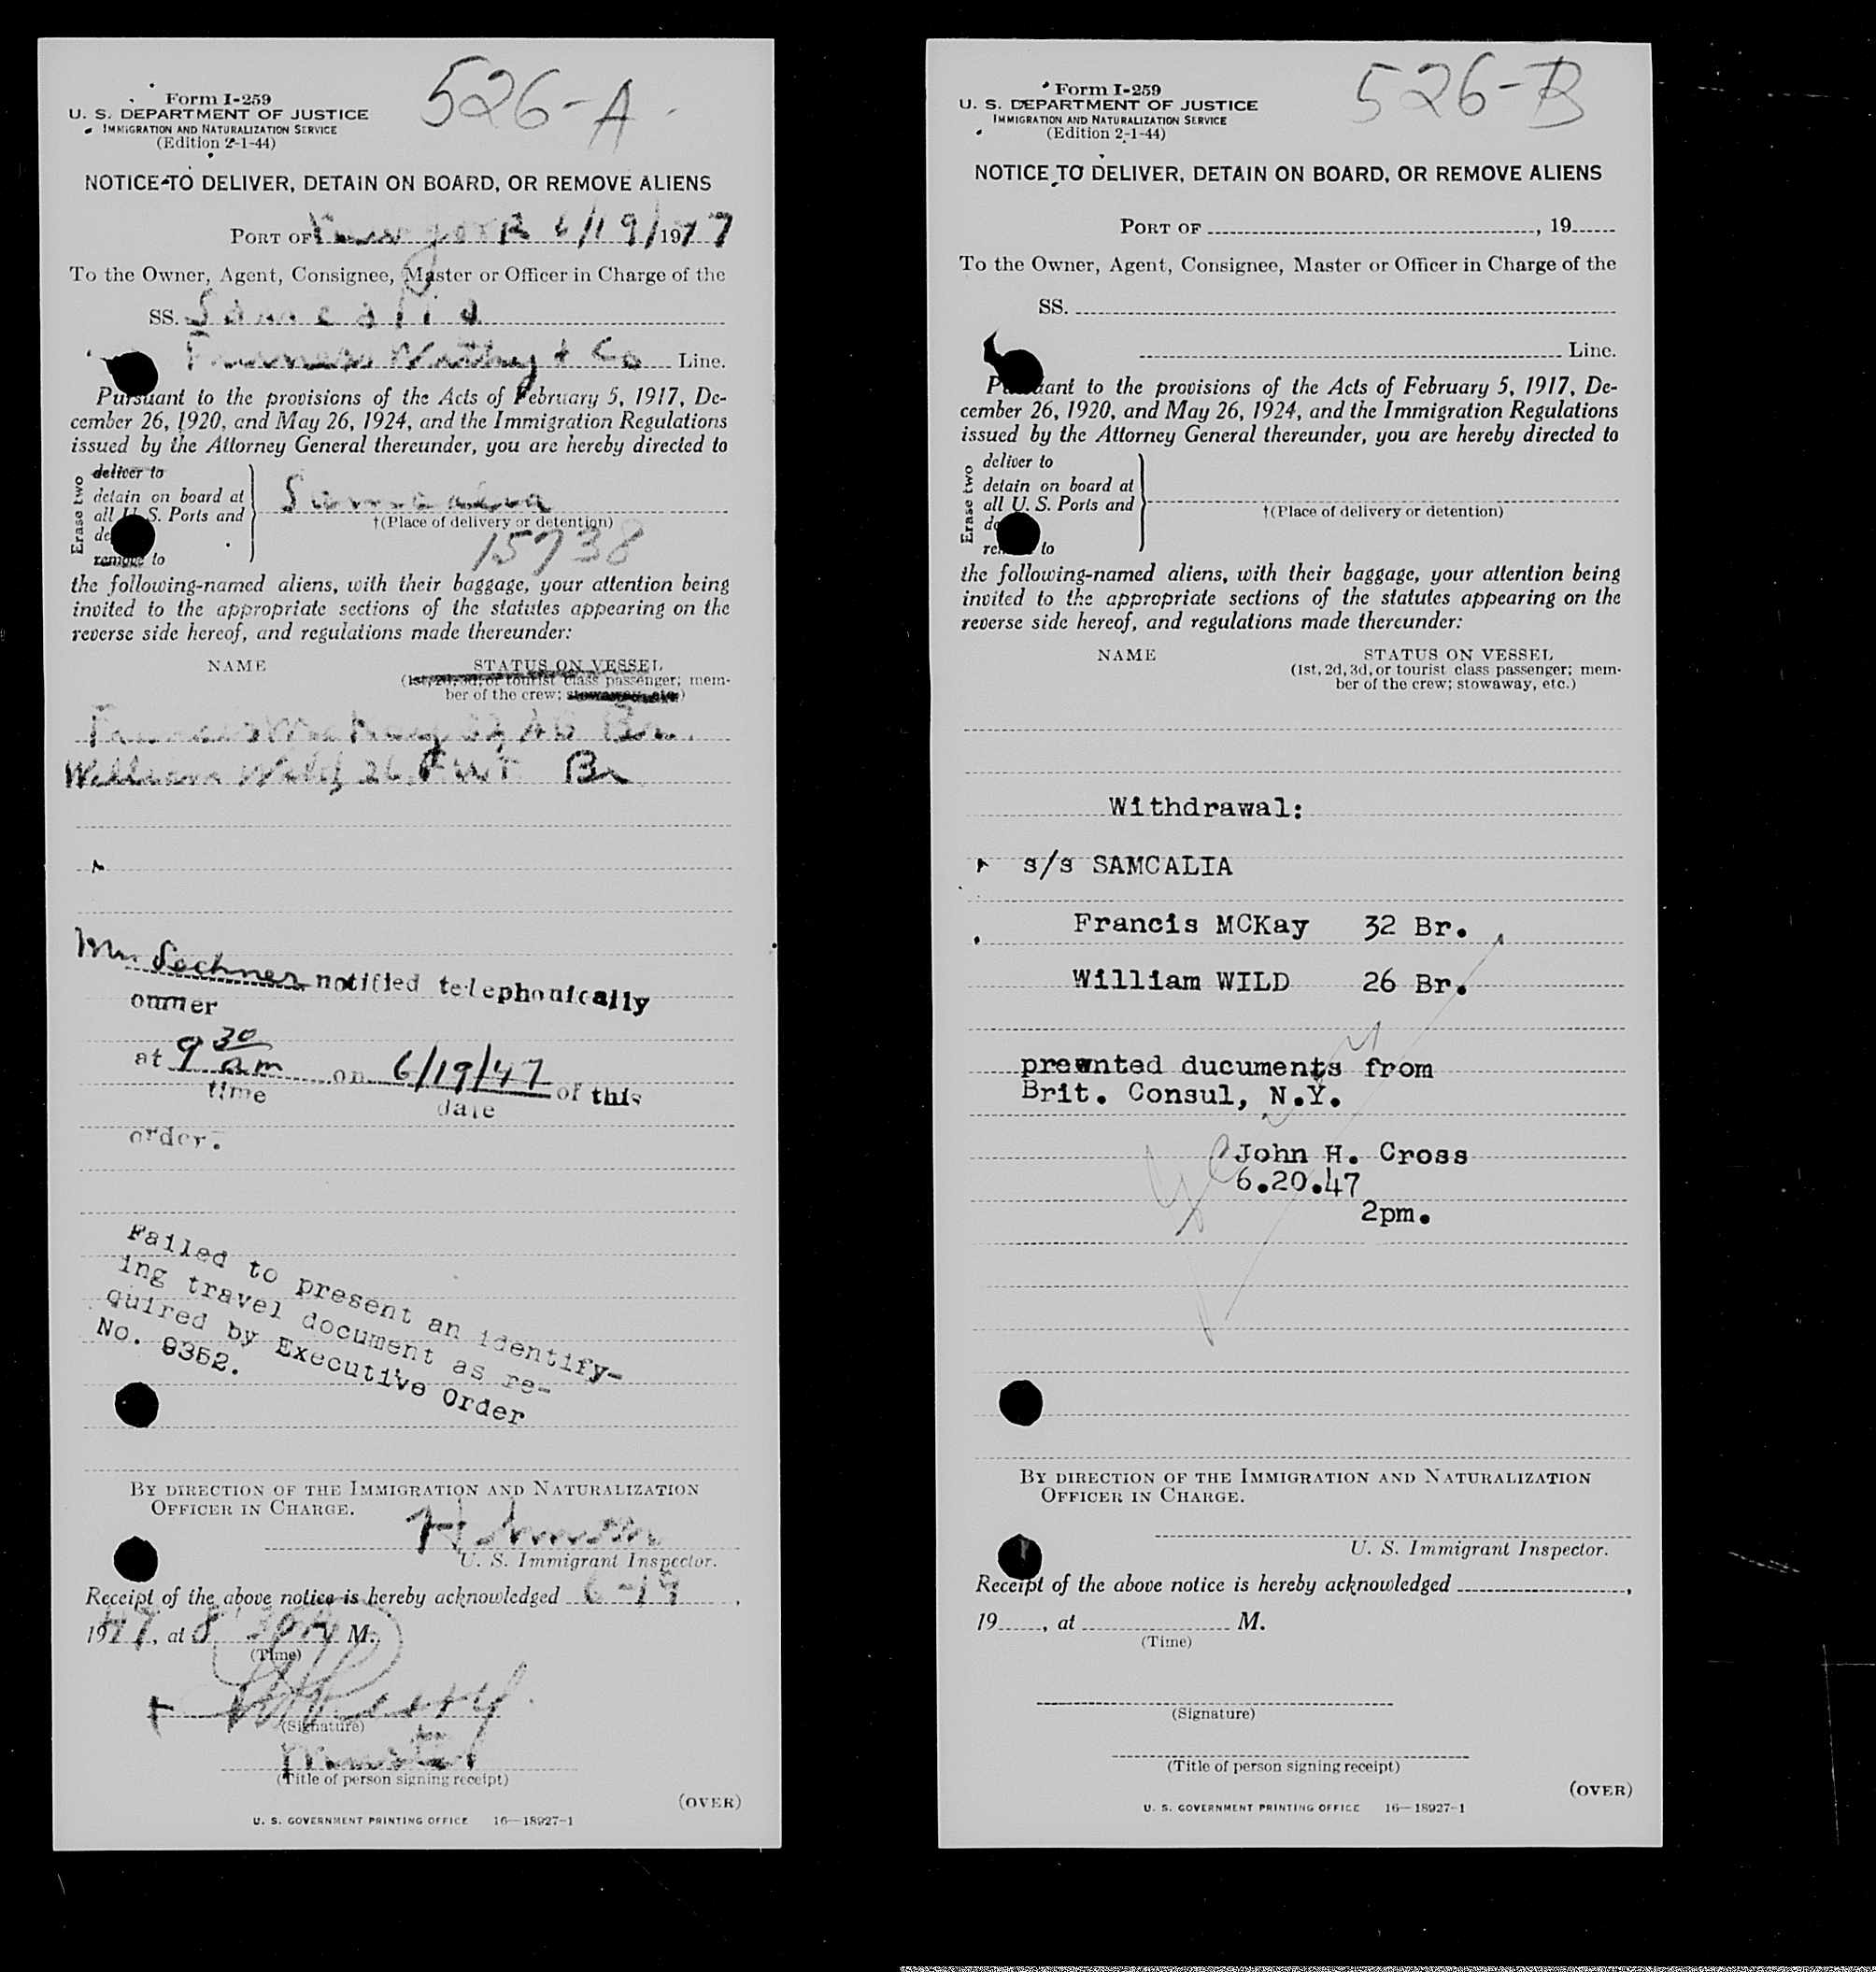 526-A
Form I-259
U. S. DEPARTMENT OF JUSTICE
IMMIGRATION AND NATURALIZATION SERVICE
(Edition 2-1-44)
NOTICE TO DELIVER, DETAIN ON BOARD, OR REMOVE ALIENS
PORT OF New York 6/19/1947
To the Owner, Agent, Consignee, Master or Officer in Charge of the
SS. Samcalia
Furness Withy & Co Line.
Pursuant to the provisions of the Acts of February 5, 1917, De-
cember 26, 1920, and May 26, 1924, and the Immigration Regulations
issued by the Attorney General thereunder, you are hereby directed to
Erase two
deliver to
detain on board at
all U. S. Ports and
remove to
Samcalia
†(Place of delivery or detention)
15738
the following-named aliens, with their baggage, your attention being
invited to the appropriate sections of the statutes appearing on the
reverse side hereof, and regulations made thereunder:
NAME STATUS ON VESSEL
(1st, 2d, 3d, or tourist class passenger; mem-
ber of the crew; stowaway, etc.)
Francis McKay 32 AB Br.
William Wild 26 Br
Mr. Lechner notified telephonically
owner
at 9 30 am on 6/19/47 of this
time date
order.
Failed to present an identify-
ing travel document as re-
quired by Executive Order
No. 9352.
BY DIRECTION OF THE IMMIGRATION AND NATURALIZATION
OFFICER IN CHARGE.
U. S. Immigrant Inspector.
Receipt of the above notice is hereby acknowledged 6-19,
1947, at 8 30 A M.
(Time)
(Signature)
Master
(Title of person signing receipt)
(OVER)
U. S. GOVERNMENT PRINTING OFFICE 16—18927-1
526-B
Form I-259
U. S. DEPARTMENT OF JUSTICE
IMMIGRATION AND NATURALIZATION SERVICE
(Edition 2-1-44)
NOTICE TO DELIVER, DETAIN ON BOARD, OR REMOVE ALIENS
PORT OF , 19
To the Owner, Agent, Consignee, Master or Officer in Charge of the
SS.
Line.
Pursuant to the provisions of the Acts of February 5, 1917, De-
cember 26, 1920, and May 26, 1924, and the Immigration Regulations
issued by the Attorney General thereunder, you are hereby directed to
Erase two
deliver to
detain on board at
all U. S. Ports and
remove to
†(Place of delivery or detention)
the following-named aliens, with their baggage, your attention being
invited to the appropriate sections of the statutes appearing on the
reverse side hereof, and regulations made thereunder:
NAME STATUS ON VESSEL
(1st, 2d, 3d, or tourist class passenger; mem-
ber of the crew; stowaway, etc.)
Withdrawal:
s/s SAMCALIA
Francis MCKay 32 Br.
William WILD 26 Br.
ducuments from
Brit. Consul, N.Y.
John H. Cross
6.20.47
2pm.
BY DIRECTION OF THE IMMIGRATION AND NATURALIZATION
OFFICER IN CHARGE.
U. S. Immigrant Inspector.
Receipt of the above notice is hereby acknowledged ,
19 , at M.
(Time)
(Signature)
(Title of person signing receipt)
(OVER)
U. S. GOVERNMENT PRINTING OFFICE 16—18927-1